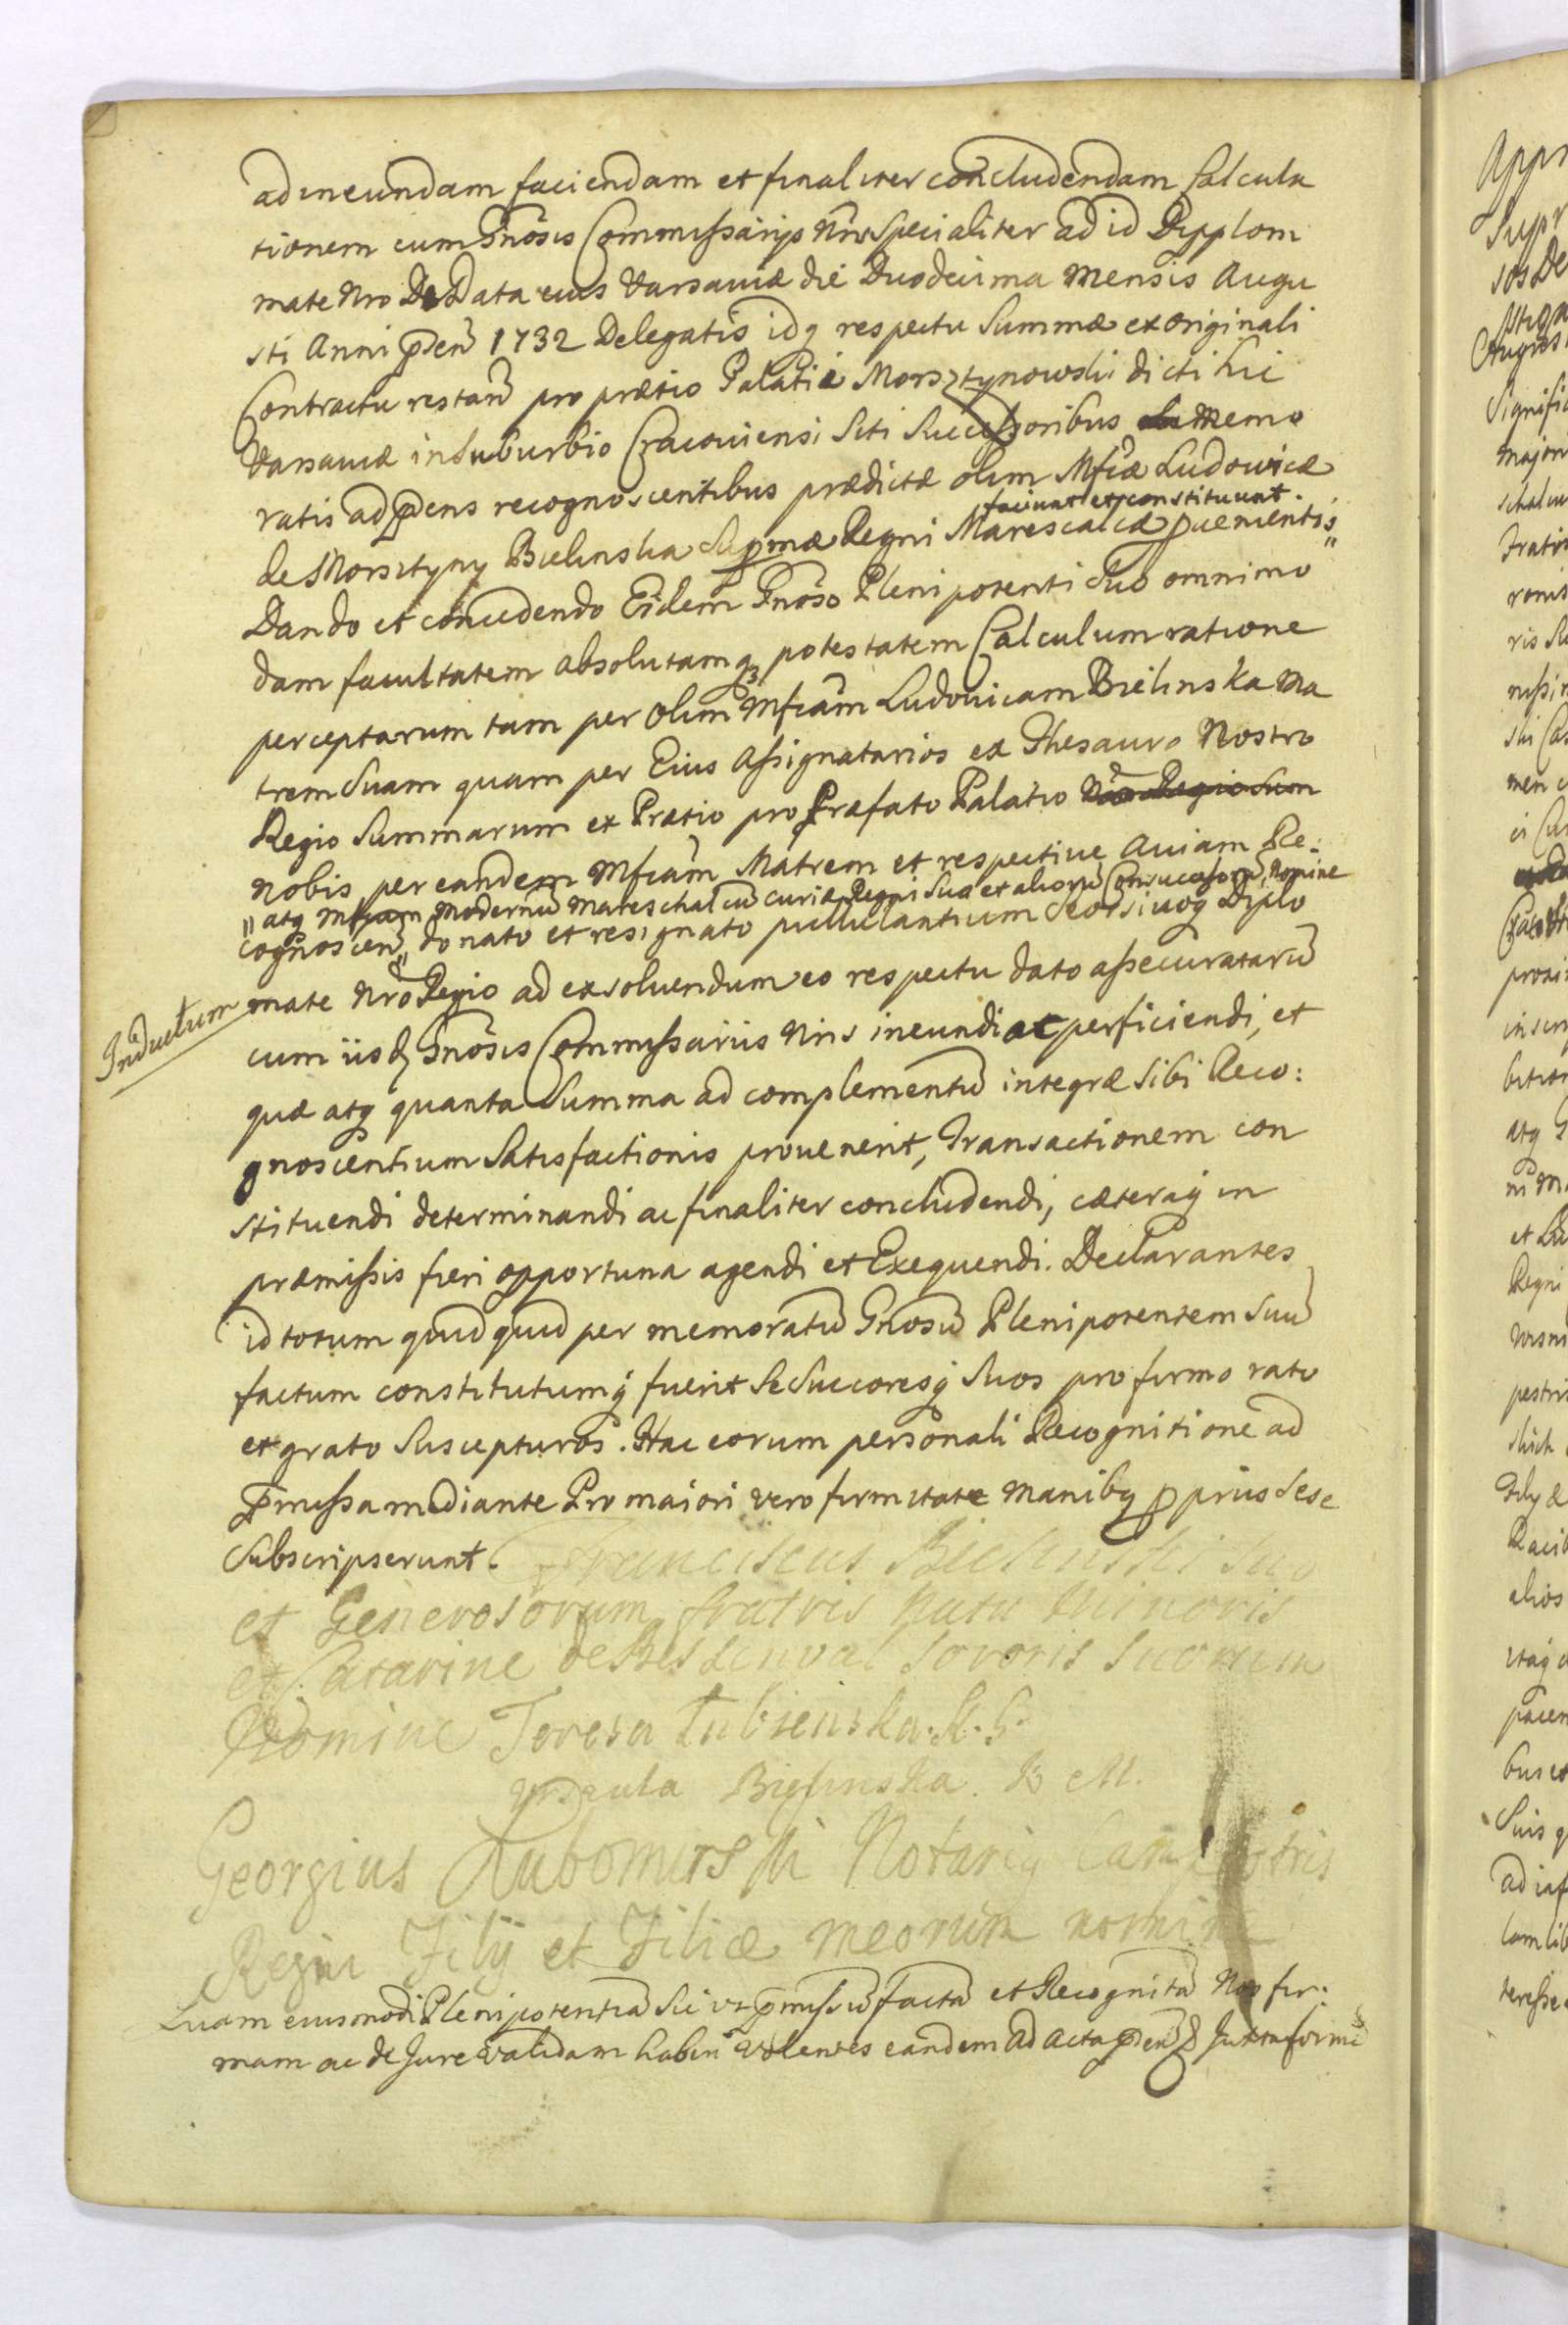 ad ineundam faciendam et finaliter concludendam Calcula
tionem cum Gnosis Commissarijs Nris Specialiter ad id Dyplom
mate Nro De Data eius Varsaviæ die Duodecima Mensis Augu
sti Anni pden 1732 Delegatis idq respectu Summæ ex originali
Contractu restan pro prætio Palatii Morsztynowski dicti hic
Varsaviæ in Suburbio Cracoviensi Siti Successoribus Memo
ratis ad pdens recognoscentibus prædictæ olim Mficæ Ludowicæ
faciunt et constituunt.
de Morsztyny Bielinska Supmæ Regni Marescalcæ pvenientis,,
Dando et concedendo Eidem Gnoso Plenipotenti Suo omnimo
dam facultatem absolutamq potestatem Calculum ratione
perceptarum tam per Olim Mficam Ludovicam Bielinska Ma
trem Suam quam per Eius Assignatarios ex Thesauro Nostro
Regio Summarum ex Prætio pro Præfato Palatio Nro Regio Sum
nobis per eandem Mficam Matrem et respective Aviam Re:
,,atq Mficam Modernum Mareschalcum Curiæ Regni Sua et aliorum Consuccessorum Nomine
cognoscen,, donato et resignato pullulantium Seorsivoq Diplo
Inductum
mate Nro Regio ad exsolvendum eo respectu dato assecuratarum
cum iisd Gnosis Commissariis Nris ineundi ac perficiendi, et
quæ atq quanta Summa ad complementum integræ sibi Reco:
gnoscentium Satisfactionis provenerit, Transactionem con
stituendi determinandi ac finaliter concludendi, cæteraq in
præmissis fieri opportuna agendi et Exequendi. Declarantes
id totum quidquid per memoratum Gnosum Plenipotentem Suum
factum constitutumq fuerit Se Succoresq Suos pro firmo rato
et grato Suscepturos. Hac eorum personali Recognitione ad
pmissa mediante Pro maiori vero firmitate Manibq pprius Sese
Subscripserunt. Franciscus Bielinski Suo
et Generosorum fratris Natu Minoris
et Catarine de Besdenval Sororis Suorum
Nomine Teresa Łubienska. K. S.
Urszula Bielinska. K M.
Georgius Lubomirski Notariq Campestris
Regni Filij et Filiæ meorum nomine
Quam eiusmodi Plenipotentiam Sic ut pmissum factam et Recognitam Nos fir:
mam ac de Jure validam haberi volentes eandem ad Acta pden Juxta formam